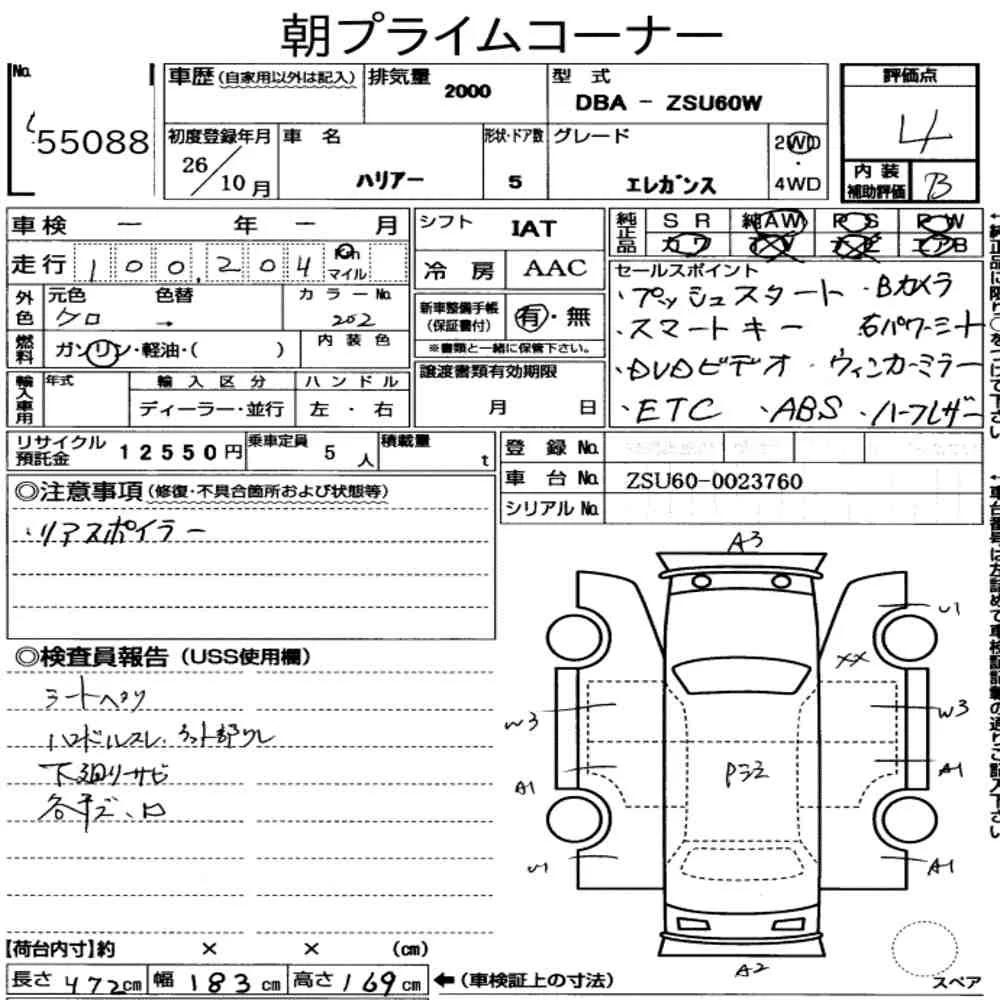 朝プライムコーナー
No.
55088
車歴(自家用以外は記入)
排気量
2000
型 式
DBA - ZSU60W
評価点
4
初度登録年月
26/10月
車 名
ハリアー
形状・ドア数
5
グレード
エレガンス
2WD
・
4WD
内装
補助評価
B
車検 ー 年 ー 月
走行 100,204 Km
マイル
シフト
IAT
冷 房
AAC
純正品
S R
純AW
P S
P W
カワ
TV
ナビ
エアB
外色
元色
クロ
色替
→
カラーNo.
202
燃料
ガソリン・軽油・( )
内装色
新車整備手帳
(保証書付)
有・無
※書類と一緒に保管下さい。
セールスポイント
・プッシュスタート ・Bカメラ
・スマートキー 右パワーミート
・DVDビデオ ・ウィンカーミラー
・ETC ・ABS ・ハーフレザー
輸入車用
年式
輸 入 区 分
ディーラー・並行
ハ ン ド ル
左 ・ 右
譲渡書類有効期限
月 日
リサイクル
預託金
12550円
乗車定員
5人
積載量
t
登 録 No.
車 台 No.
ZSU60-0023760
シリアル No.
◎注意事項(修復・不具合箇所および状態等)
・リアスポイラー
◎検査員報告(USS使用欄)
シートヘタリ
ハンドルスレ、
下廻りサビ
A3
U1
XX
W3
W3
A1
A1
U1
A1
A2
スペア
【荷台内寸】約 × × (cm)
長さ 472cm 幅 183cm 高さ 169cm ←(車検証上の寸法)
←純正品に限り○をつけて下さい